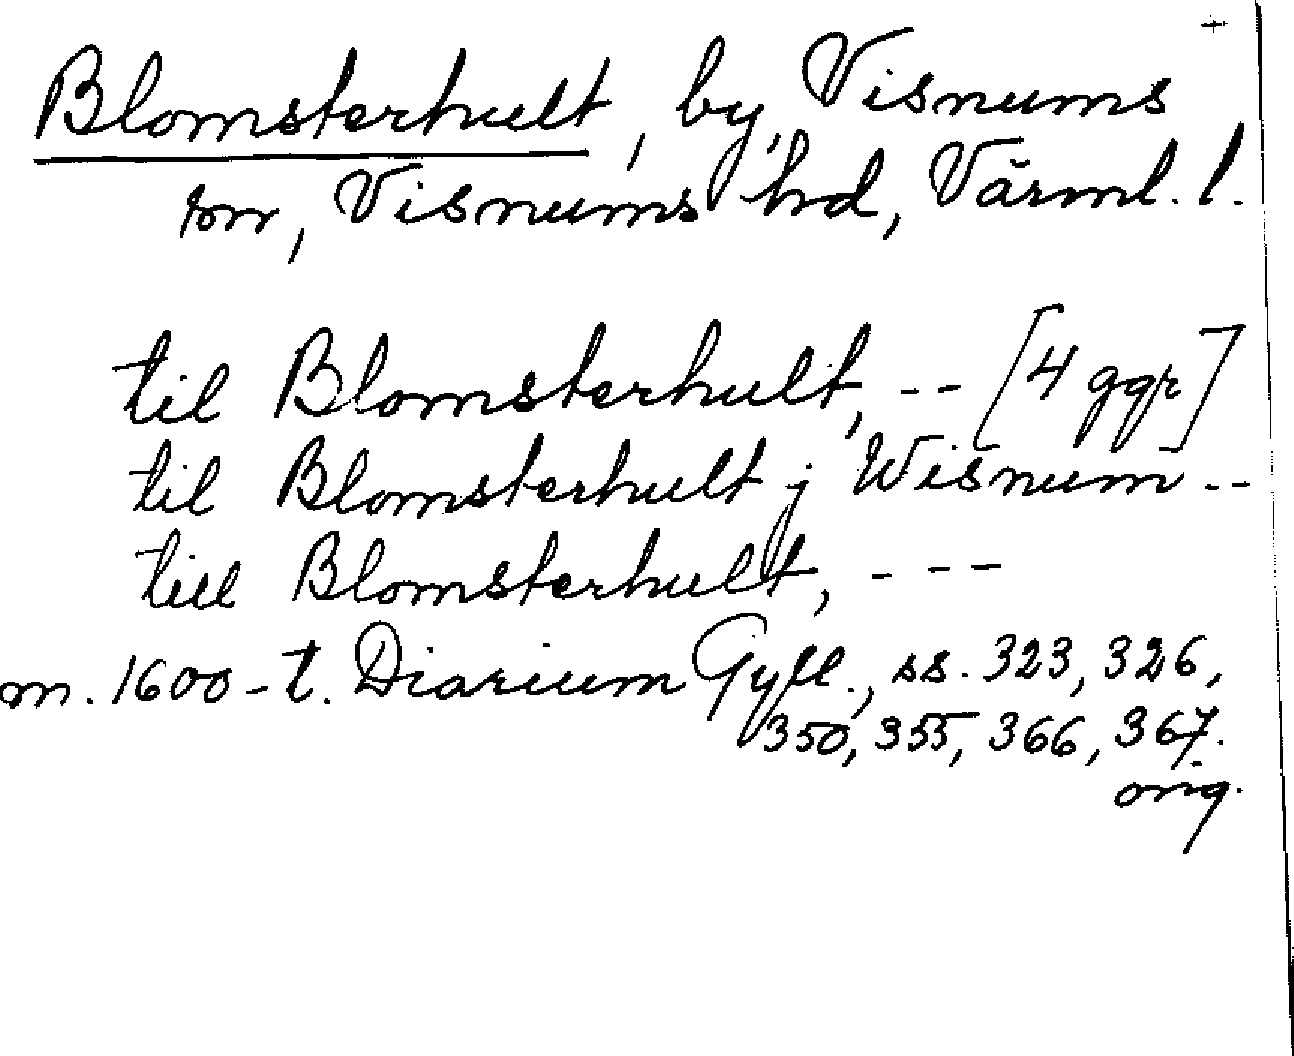 +
Blomsterhult, by, Visnums
sn, Visnums hd, Värml. l.
til Blomsterhult, -- [4 ggr]
til Blomsterhult j Wisnum --
till Blomsterhult, ---
m. 1600-t. Diarium Gyll., ss. 323, 326,
350, 355, 366, 367.
orig.